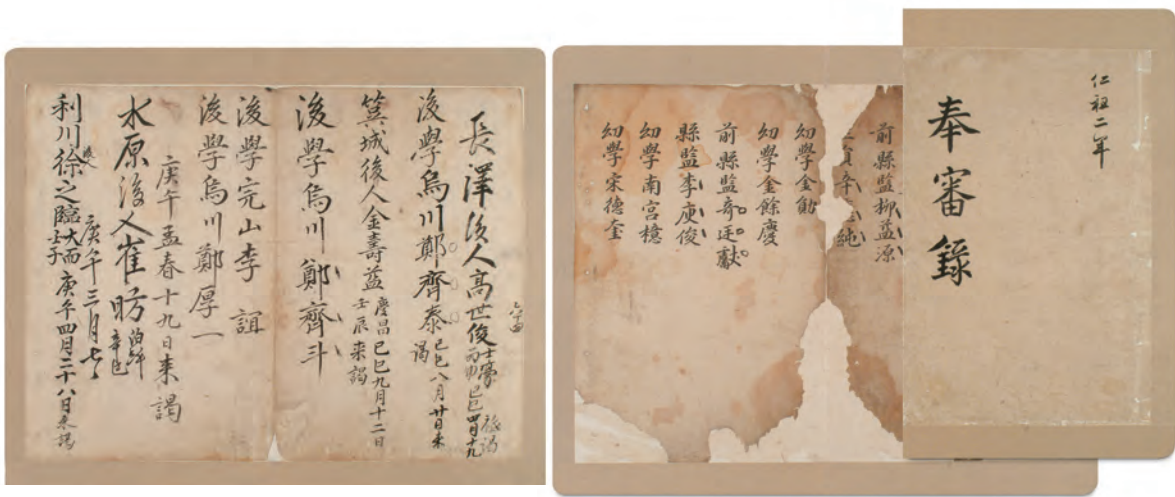 仁祖二年
奉審錄
前縣監柳益源
幼學金勛
幼學金餘慶
前縣監奇廷獻
縣監李庾俊
幼學南宮檍
幼學宋德奎
長澤後人高世俊 士豪 己巳四月十九 祗謁
後學烏川鄭齊泰 己巳八月廿日來謁
箕城後人金壽益 慶昌 壬辰 己巳九月十二日來謁
後學烏川鄭齊斗
後學完山李誼
後學烏川鄭厚一
庚午孟春十九日來謁
水原後人崔昉 辛巳
庚午三月七日
利川後人徐之臨 大而 壬子 庚午四月二十八日來謁